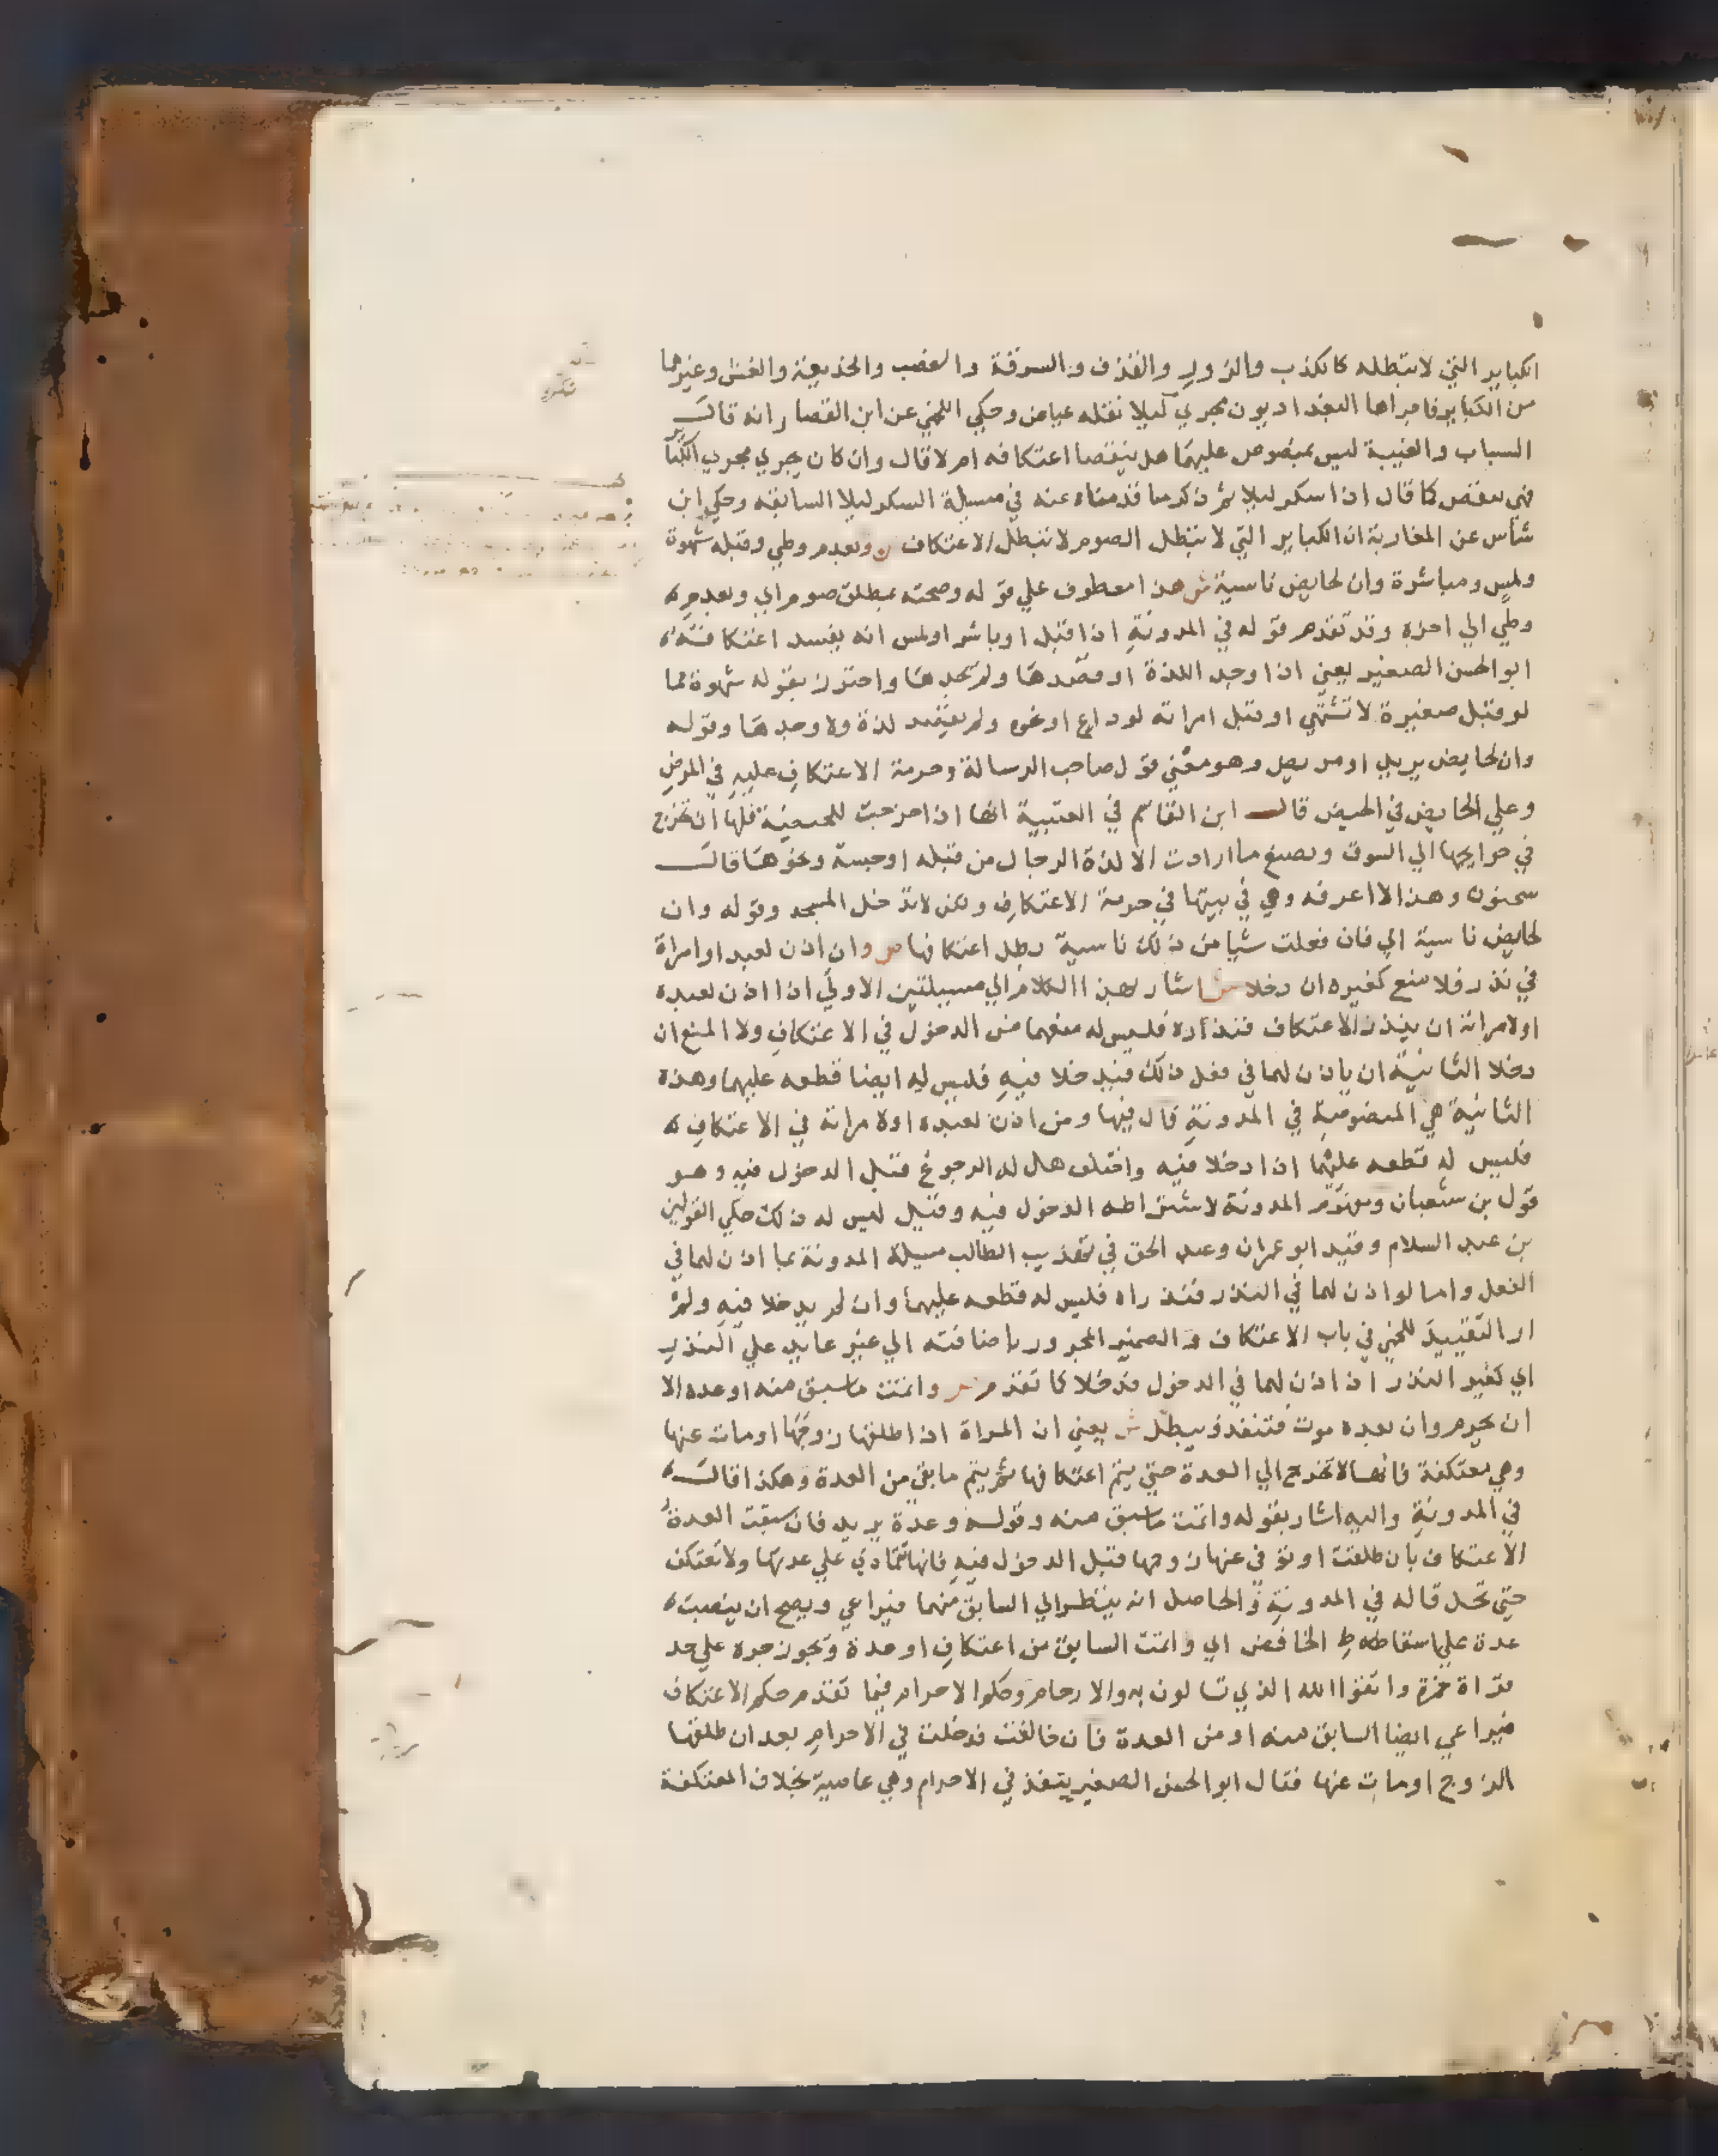 الكباير التي لا تبطله كالكذب والزور والقذف والسرقة والغصب والخديعة والغش وغيرها
من الكباير فامراها البغداديون تجري ليلا نقله عياض وحكي اللخمي عن ابن القصار انه قال
السباب والغيبة ليس بمنصوص عليهما هل ينقضا اعتكافه ام لا قال وان كان يجري مجري الكباير
فهي تنقض كما قال اذا سكر ليلا ثم ذكر ما قدمناه عنه في مسيلة السكر ليلا السابقه وحكي ابن
شاس عن المغاربة ان الكباير التي لا تبطل الصوم لا تبطل الاعتكاف ص وبعدم وطي وقبلة شهوة
ولمس ومباشرة وان لحايض ناسية ش هذا معطوف علي قوله وصحته بمطلق صوم اي وبعدم
وطي الي اخره وقد تقدم قوله في المدونة اذا قبل او باشر او لمس انه يفسد اعتكافه
ابو الحسن الصغير يعني اذا وجد اللذة او قصدها ولم يجدها واحترز بقوله شهوة مما
لو قبل صغيرة لا تشتهي او قبل امراته لوداع او نحوه ولم يقصد لذة ولا وجدها وقوله
وان لحايض يريد او مريض وهو معني قول صاحب الرسالة وحرمة الاعتكاف عليه في المرض
وعلي الحايض في الحيض قال ابن القاسم في العتبية انها اذا خرجت للحيضة فلها ان تخرج
في حوايجها الي السوق وتصنع ما ارادت الا لذة الرجال من قبله او جسة ونحوها قال
سحنون وهذا لا اعرفه وهي في بيتها في حرمة الاعتكاف ولكن لا تدخل المسجد وقوله وان
لحايض ناسية اي فان فعلت شيا من ذلك ناسية بطل اعتكافها ص وان اذن لعبد او امراة
في نذر فلا منع كغيره ان دخلا ش اشار بهذا الكلام الي مسيلتين الاولي اذا اذن لعبده
او لامراته ان ينذر الاعتكاف فنذراه فليس له منعهما من الدخول في الاعتكاف ولا المنع ان
دخلا الثانية ان ياذن لهما في فعل ذلك فيدخلا فيه فليس له ايضا قطعه عليهما وهذه
الثانية هي المنصوصة في المدونة قال فيها ومن اذن لعبده او لامراته في الاعتكاف
فليس له قطعه عليهما اذا دخلا فيه واختلف هل له الرجوع قبل الدخول فيه وهو
قول بن شعبان ومفهوم المدونة لاشتراطه الدخول فيه وقيل ليس له ذلك حكي القولين
بن عبد السلام وقيد ابو عمران وعبد الحق في تهذيب الطالب مسيلة المدونة بما اذن لهما في
الفعل واما لو اذن لهما في النذر فنذراه فليس له قطعه عليهما وان لم يدخلا فيه ولم
ار التقييد للخمي في باب الاعتكاف والضمير المجرور باضافته الي غير عايد علي النذر
اي كغير النذر اذا اذن لهما في الدخول فدخلا كما تقدم ص واتمت ما سبق منه او عدة الا
ان تحرم وان بعده موت فتنفذ ويبطل ش يعني ان المراة اذا طلقها زوجها او مات عنها
وهي معتكفة فانها لا تخرج الي العدة حتي يتم اعتكافها ثم يتم ما بقي من العدة وهكذا قال
في المدونة واليه اشار بقوله واتمت ما سبق منه وقوله وعدة يريد فان سبقت العدة
الاعتكاف بان طلقت او توفي عنها زوجها قبل الدخول فيه فانها تتمادي علي عدتها ولا تعتكف
حتي تحل قاله في المدونة والحاصل انه ينظر الي السابق منهما فيراعي ويصح ان ينصب
عدة علي اسقاط الخافض اي واتمت السابق من اعتكاف او عدة ويجوز جره علي حد
قراة حمزة واتقوا الله الذي تسالون به والارحام وحكم الاحرام فيما تقدم حكم الاعتكاف
فيراعي ايضا السابق منه او من العدة فان خالفت فدخلت في الاحرام بعد ان طلقها
الزوج او مات عنها فقال ابو الحسن الصغير ينفذ في الاحرام وهي عاصية بخلاف المعتكفة